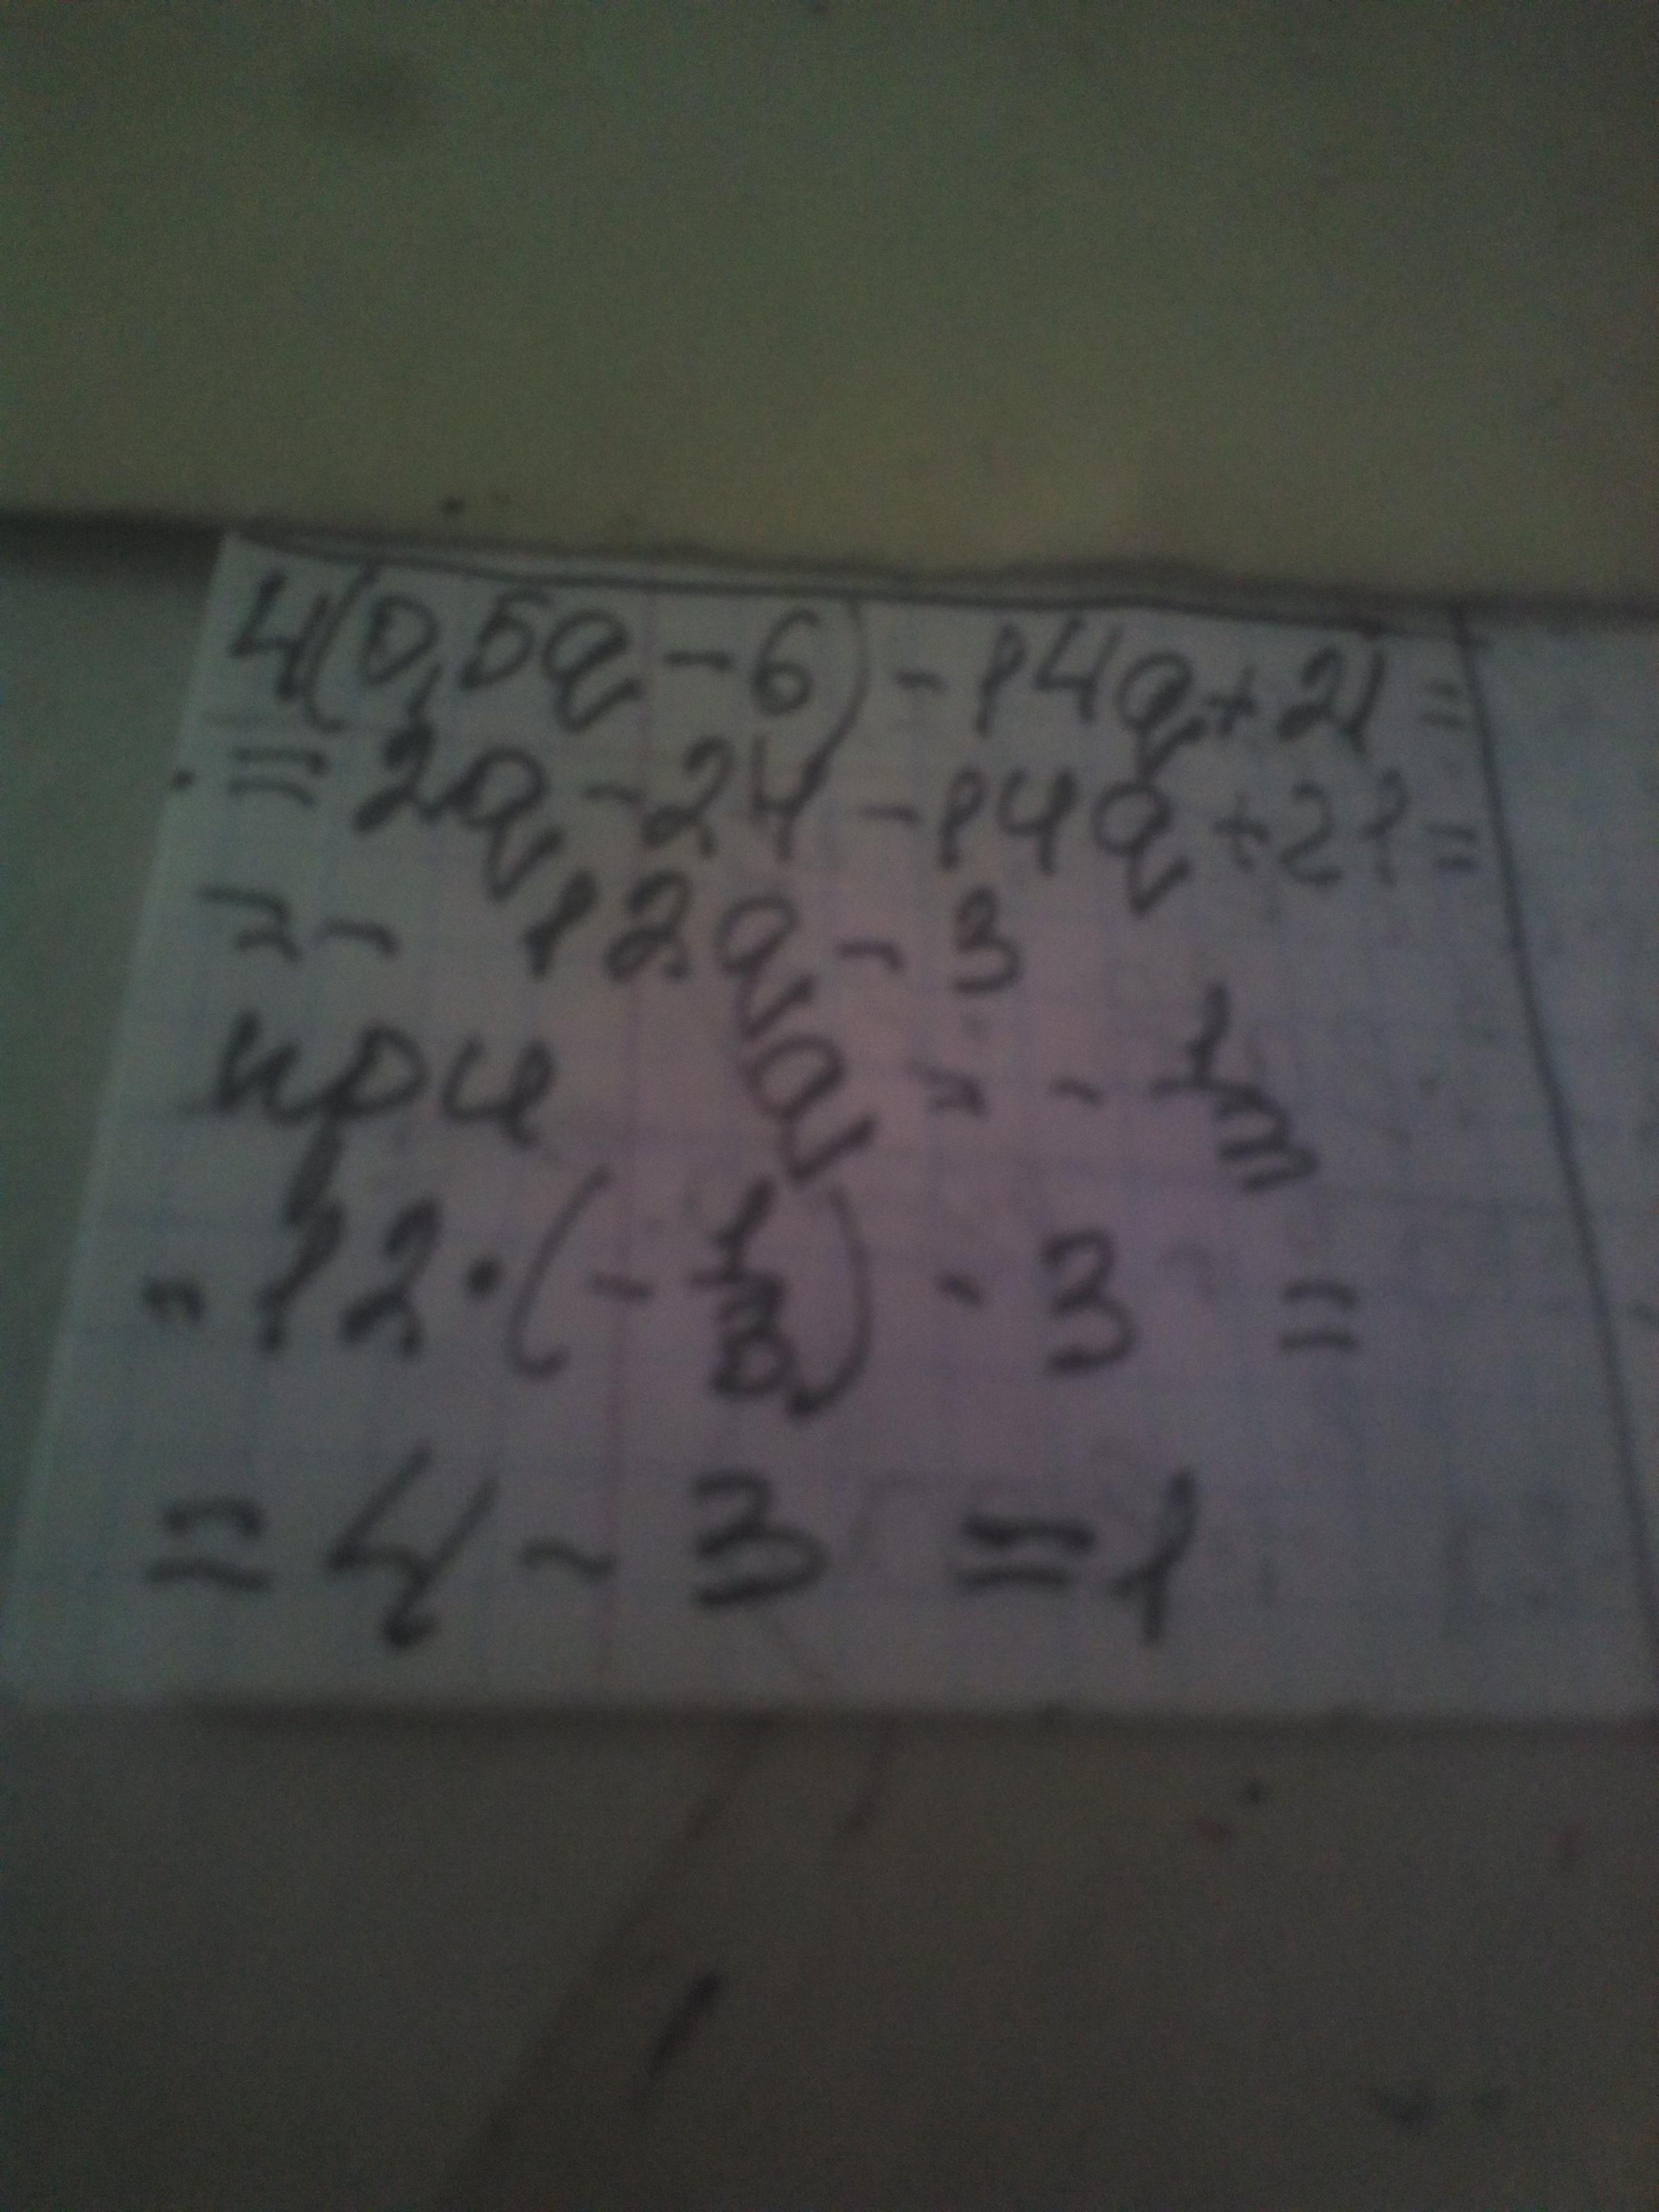 4(0,5a-6)-14a+21=
=2a-24-14a+21=
=-12a-3
при a=-1/3
-12·(-1/3)-3=
=4-3=1